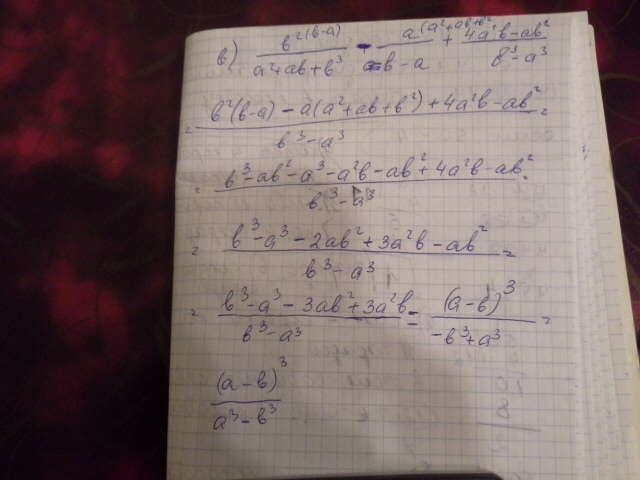 в) b^2(b-a) / a^2+ab+b^3 - a(a^2+ab+b^2 / b-a + 4a^2b-ab^2 / b^3-a^3
= b^2(b-a) - a(a^2+ab+b^2) + 4a^2b-ab^2 / b^3-a^3 =
= b^3-ab^2-a^3-a^2b-ab^2+4a^2b-ab^2 / b^3-a^3
= b^3-a^3-2ab^2+3a^2b-ab^2 / b^3-a^3 =
= b^3-a^3-3ab^2+3a^2b / b^3-a^3 = (a-b)^3 / -b^3+a^3 =
(a-b)^3 / a^3-b^3